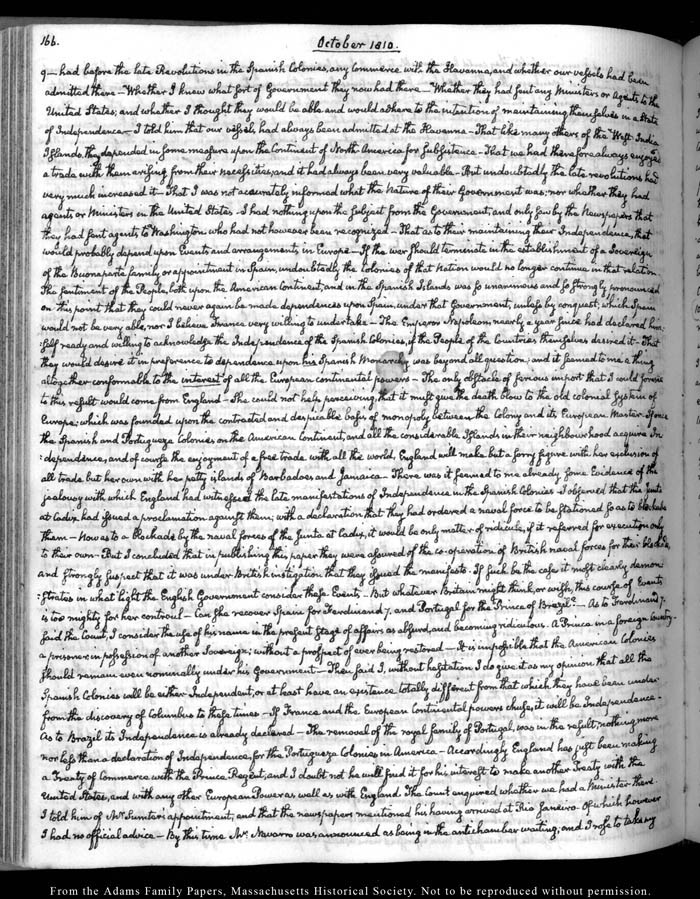 166.
October 1810.
9— had before the late Revolutions in the Spanish Colonies, any Commerce with the Havanna, and whether our vessels had been
admitted there — Whether I knew what sort of Government they now had there — Whether they had sent any Ministers or Agents to the
United States; and whether I thought they would be able and would adhere to the intention of maintaining themselves in a State
of Independence — I told him that our vessels, had always been admitted at the Havanna — That like many others of the West-India
Islands, they depended in some measure upon the Continent of North America for subsistence — That we had therefore always enjoyed
a trade with them arising from their necessities, and it had always been very valuable — But undoubtedly the late revolutions had
very much increased it — That I was not accurately informed what the Nature of their Government was; nor whether they had
agents or Ministers in the United States — I had nothing upon the subject from the Government, and only saw by the Newspapers that
they had sent agents to Washington who had not however been recognized — That as to their maintaining their Independence, that
would probably depend upon Events and arrangements in Europe — If the war should terminate in the establishment of a Sovereign
of the Buonaparte family, or appointment in Spain, undoubtedly the Colonies of that Nation would no longer continue in that relation
The sentiment of the People, both upon the American Continent, and in the Spanish Islands was so unanimous and so strongly pronounced
on this point that they could never again be made dependences upon Spain, under that Government, unless by conquest; which Spain
would not be very able, nor I believe France very willing to undertake — The Emperor Napoleon, nearly a year since had declared him:
:self ready and willing to acknowledge the Independence of the Spanish Colonies, if the People of the Countries themselves desired it — That
they would desire it in preference to dependence upon his Spanish Monarchy was beyond all question; and it seemed to me a thing
altogether conformable to the interest of all the European continental powers — The only obstacle of serious import that I could foresee
to this result would come from England — She could not help perceiving, that it must give the death blow to the old colonial System of
Europe; which was founded upon the contracted and despicable basis of monopoly between the Colony and its European Master. If once
the Spanish and Portuguese Colonies on the American Continent, and all the considerable Islands in their neighbourhood acquire In
:dependence, and of course the enjoyment of a free trade with all the world, England will make but a sorry figure with her exclusion of
all trade but her own with her petty islands of Barbadoes and Jamaica — There was it seemed to me already some Evidence of the
jealousy with which England had witnessed the late manifestations of Independence in the Spanish Colonies — I observed that the Junta
at Cadiz had issued a proclamation against them; with a declaration that they had ordered a naval force to be stationed so as to blockade
them — Now as to a blockade by the naval forces of the Junta at Cadiz, it would be only matter of ridicule, if it referred for execution only
to their own — But I concluded that in publishing this paper they were assured of the co-operation of British naval forces for their blockade,
and strongly suspect that it was under British instigation that they issued the manifesto. If such be the case it most clearly demon:
:strates in what light the English Government consider these Events — But whatever Britain might think, or wish, this course of Events
is too mighty for her controul — Can she recover Spain for Ferdinand 7. and Portugal for the Prince of Brazil? — As to Ferdinand 7.
said the Count, I consider the use of his name in the present stage of affairs as absurd, and becoming ridiculous. A Prince in a foreign Country —
a prisoner in possession of another Sovereign; without a prospect of ever being restored — It is impossible that the American Colonies
should remain even nominally under his Government — Then said I, without hesitation I do give it as my opinion that all the
Spanish Colonies will be either Independent, or at least have an existence totally different from that which they have been under
from the discovery of Columbus to these times — If France and the European Continental powers chuse, it will be Independence —
As to Brazil its Independence is already declared — The removal of the royal family of Portugal, was in the result, nothing more
nor less than a declaration of Independence, for the Portuguese Colonies in America — Accordingly England has just been making
a Treaty of Commerce with the Prince Regent, and I doubt not he will find it for his interest to make another Treaty with the
United States, and with any other European Power as well as with England. The Count enquired whether we had a Minister there
I told him of Mr. Sumter's appointment, and that the newspapers mentioned his having arrived at Rio Janeiro. Of which however
I had no official advice — By this time Mr. Navarro was announced as being in the antichamber waiting; and I rose to take my
From the Adams Family Papers, Massachusetts Historical Society. Not to be reproduced without permission.